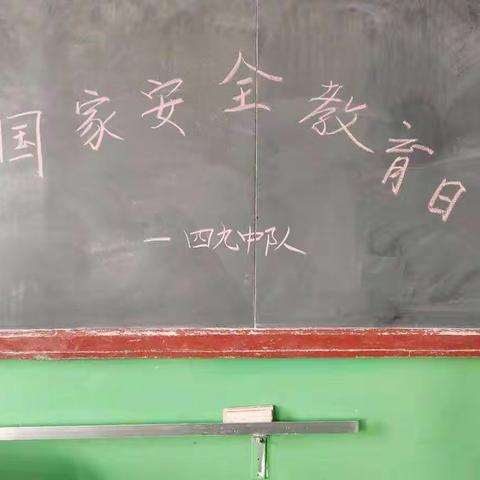 国家安全教育日
一四九中队